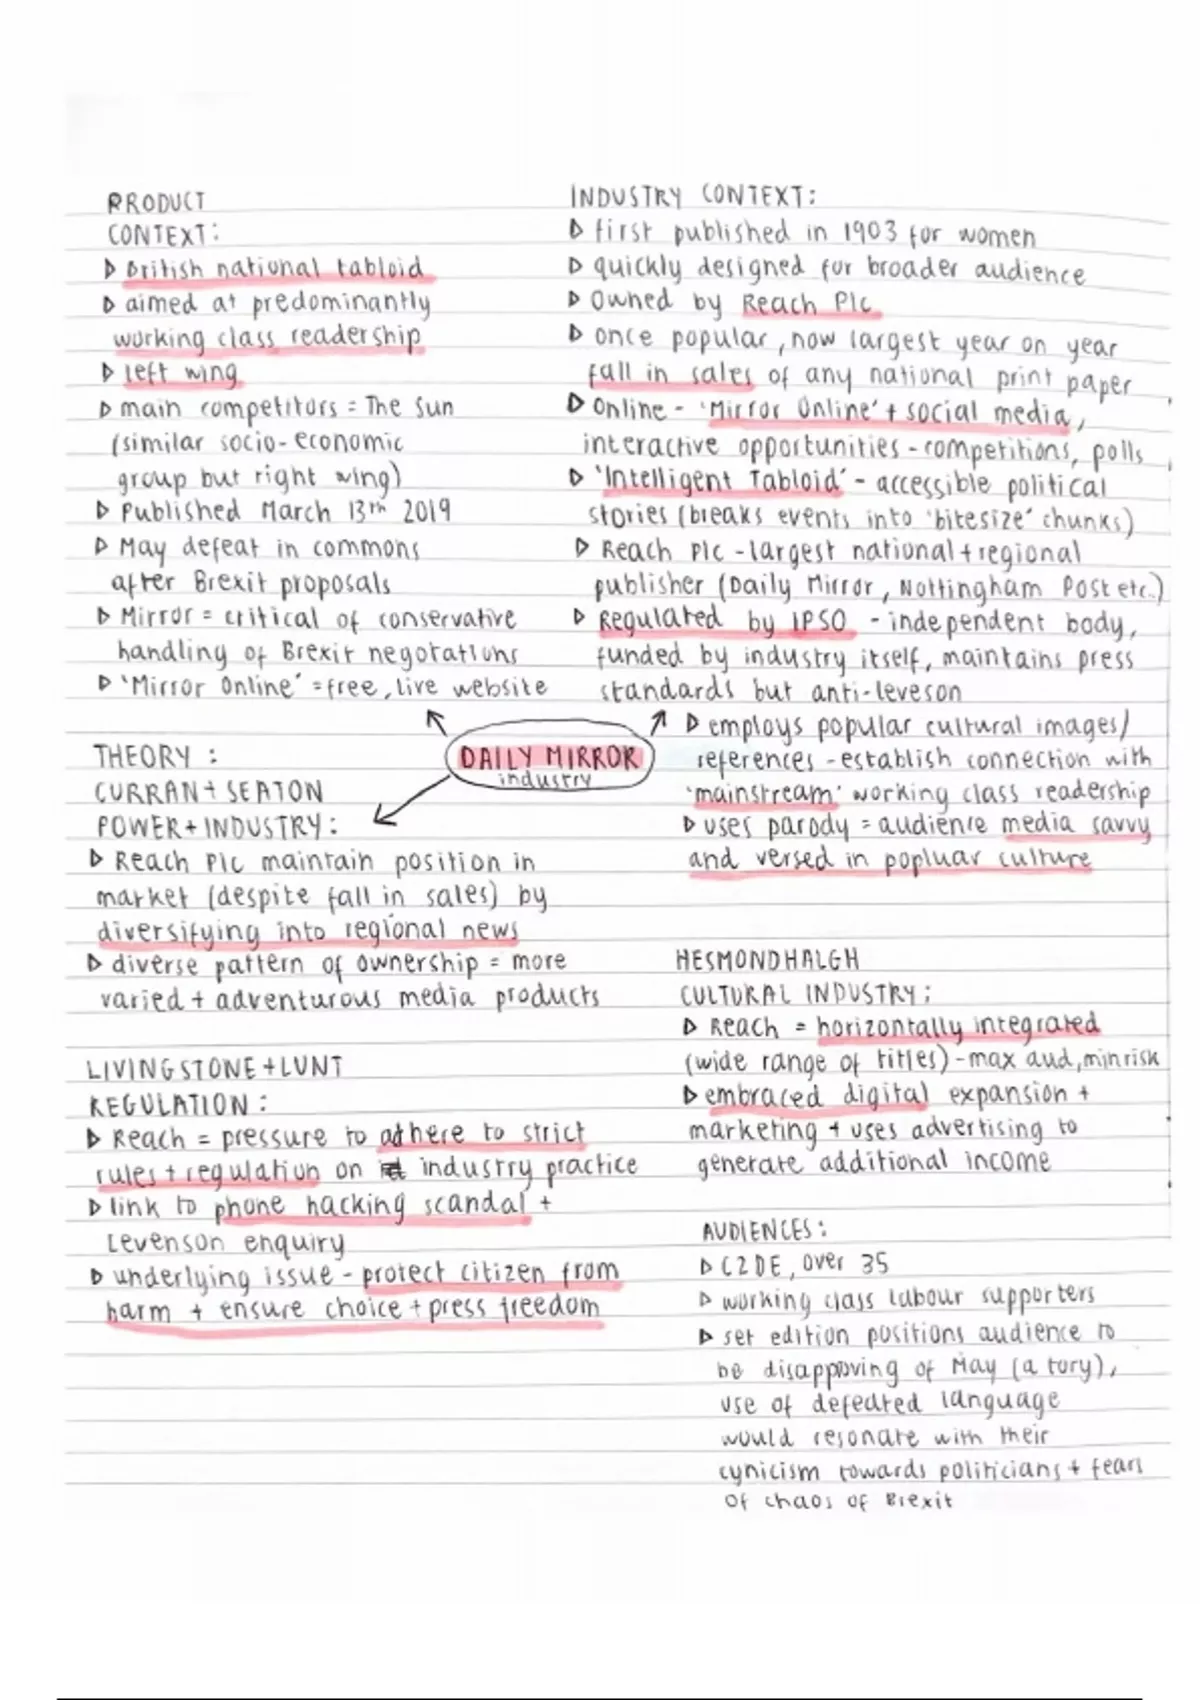 PRODUCT
CONTEXT:
▷ British national tabloid
▷ aimed at predominantly
working class readership
▷ left wing
▷ main competitors = The Sun
(similar socio-economic
group but right wing)
▷ Published March 13th 2019
▷ May defeat in commons
after Brexit proposals
▷ Mirror = critical of conservative
handling of Brexit negotations
▷ 'Mirror Online' = free, live website
INDUSTRY CONTEXT:
▷ first published in 1903 for women
▷ quickly designed for broader audience
▷ Owned by Reach Plc
▷ once popular, now largest year on year
fall in sales of any national print paper
▷ Online - 'Mirror Online' + social media,
interactive opportunities - competitions, polls
▷ 'Intelligent Tabloid' - accessible political
stories (breaks events into 'bitesize' chunks)
▷ Reach Plc - largest national + regional
publisher (Daily Mirror, Nottingham Post etc.)
▷ Regulated by IPSO - independent body,
funded by industry itself, maintains press
standards but anti-leveson
▷ employs popular cultural images/
references - establish connection with
'mainstream' working class readership
▷ uses parody = audience media savvy
and versed in popluar culture
DAILY MIRROR
industry
THEORY :
CURRAN + SEATON
POWER + INDUSTRY:
▷ Reach Plc maintain position in
market (despite fall in sales) by
diversifying into regional news
▷ diverse pattern of ownership = more
varied + adventurous media products
LIVINGSTONE + LUNT
REGULATION :
▷ Reach = pressure to adhere to strict
rules + regulation on industry practice
▷ link to phone hacking scandal +
Levenson enquiry
▷ underlying issue - protect citizen from
harm + ensure choice + press freedom
HESMONDHALGH
CULTURAL INDUSTRY:
▷ Reach = horizontally integrated
(wide range of titles) - max aud, min risk
▷ embraced digital expansion +
marketing + uses advertising to
generate additional income
AUDIENCES:
▷ C2DE, over 35
▷ working class labour supporters
▷ set edition positions audience to
be disappoving of May (a tory),
use of defeated language
would resonate with their
cynicism towards politicians + fears
of chaos of Brexit